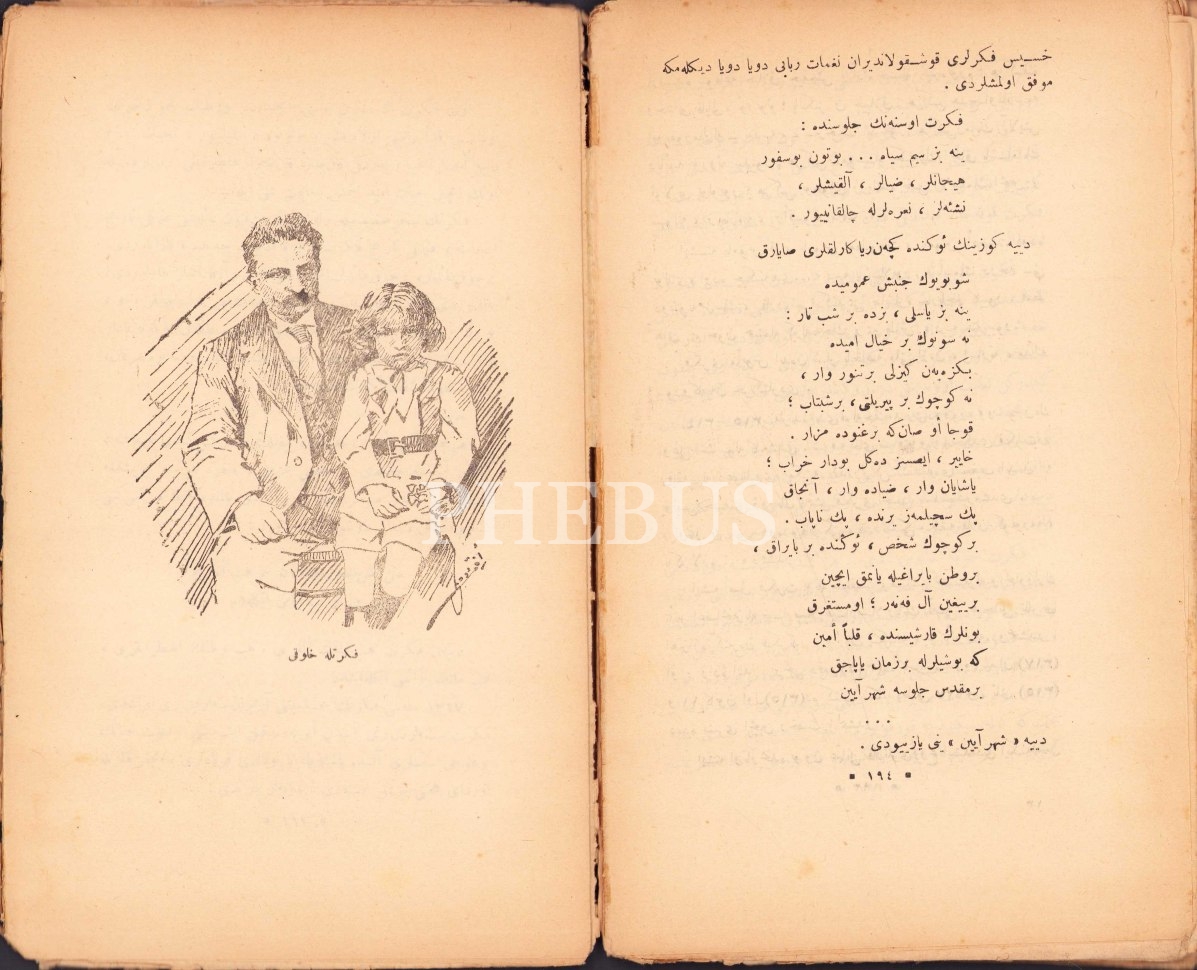 خسيس فكرلرى قوشقولانديران نغمات ربابى دويا دويا ديكله‌مكه
موفق اولمشلردى .
فكرت اوسنه‌نك جلوسنده :
ينه بز سيم سياه ... بوتون بوسفور
هيجانلر ، ضيالر ، آلقيشلر ،
نشئه‌لر ، نعره‌لرله چالقانييور .
دييه كوزينك ئوكنده كچه‌ن رياكارلقلرى صايارق
شو بويوك جنبش عموميده
ينه بز ياسلى ، بزده بر شب تار :
نه سونوك بر خيال اميده
بكزه‌يه‌ن كيزلى بر تنور وار ،
نه كوچوك بر پيريلتى ، بر شتاب ؛
قوجا أو صان كه بر غنوده مزار .
خايير ، ايصسز ده‌كل بودار خراب ؛
ياشايان وار ، ضياده وار ، آنجاق
پك سچيلمه‌ز يرنده ، پك ناياب .
بر كوچوك شخص ، ئوكنده بر بايراق ،
بر وطن بايراغيله يانمق ايچين
بر ييغين آل فه‌نه‌ر ؛ او مستغرق
بونلرك قارشيسنده ، قلباً أمين
كه بو شيلرله بر زمان ياپاجق
بر مقدس جلوسه شهر آيين
...
دييه « شهر آيين » ينى يازييودى .
▪ ١٩٤ ▪
فكرتله خلوقى
PHEBUS